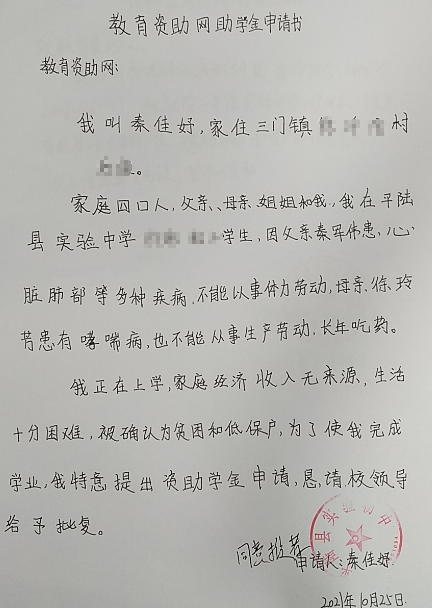 教育资助网助学金申请书
教育资助网:
我叫秦佳好,家住三门镇 村
。
家庭四口人,父亲、母亲、姐姐和我。我在平陆
县实验中学 学生,因父亲秦军伟患,心
脏肺部等多种疾病,不能从事体力劳动,母亲徐玲
芳患有哮喘病,也不能从事生产劳动,长年吃药。
我正在上学,家庭经济收入无来源,生活
十分困难,被确认为贫困和低保户,为了使我完成
学业,我特意提出资助学金申请,恳请校领导
给予批复。
同意推荐
申请人:秦佳好
2021年10月25日.
县实验初中